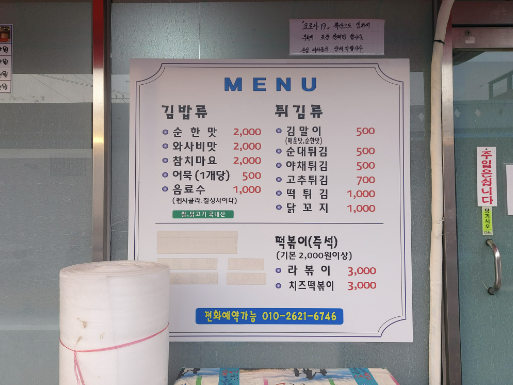 MENU
김밥류
순한맛 2,000
와사비맛 2,000
참치마요 2,000
어묵(1개당) 500
음료수 1,000
(펩시콜라, 칠성사이다)
튀김류
김말이 500
순대튀김 500
야채튀김 500
고추튀김 700
떡튀김 1,000
닭꼬지 1,000
떡볶이(즉석)
(기본 2,000원이상)
라볶이 3,000
치즈떡볶이 3,000
전화예약가능 010-2621-6746
주일은쉽니다